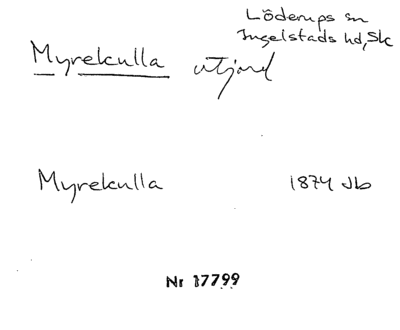 Löderups sn
Ingelstads hd, Sk
Myrekulla utjord
Myrekulla 1874 Jb
Nr 17799